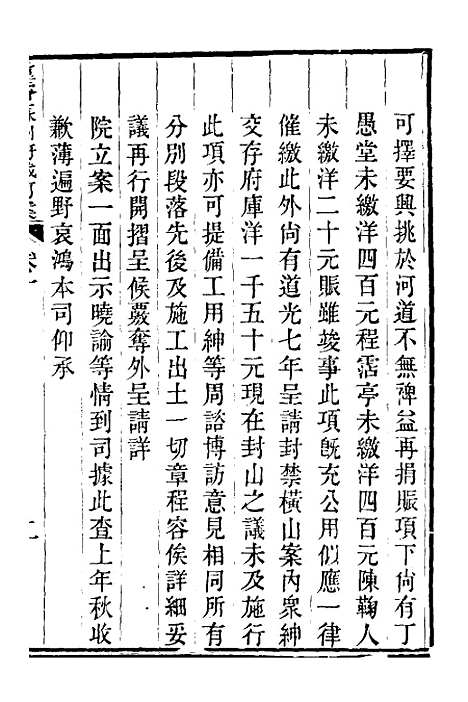 可擇要興挑於河道不無裨益再捐賑項下尙有丁
愚堂未繳洋四百元程霑亭未繳洋四百元陳鞠人
未繳洋二十元賑雖竣事此項旣充公用似應一律
催繳此外尙有道光七年呈請封禁橫山案內衆紳
交存府庫洋一千五十元現在封山之議未及施行
此項亦可提備工用紳等周諮博訪意見相同所有
分別段落先後及施工出土一切章程容俟詳細妥
議再行開摺呈候覈奪外呈請詳
院立案一面出示曉諭等情到司據此查上年秋收
歉薄遍野哀鴻本司仰承